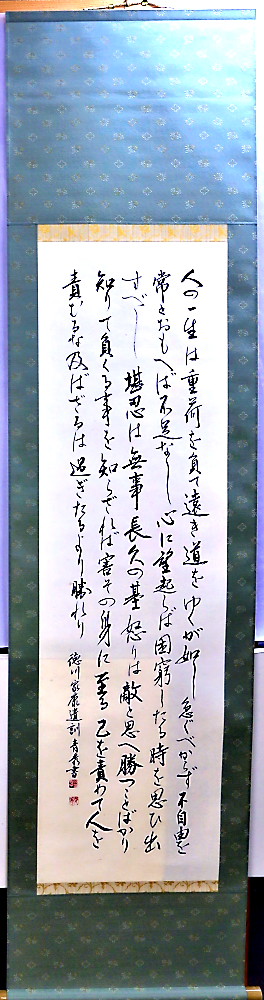 人の一生は重荷を負て遠き道をゆくが如し急ぐべからず不自由を
常とおもへば不足なし心に望起らば困窮したる時を思ひ出
すべし堪忍は無事長久の基怒りは敵と思へ勝つことばかり
知りて負くる事を知らざれば害その身に至る己を責めて人を
責むるな及ばざるは過ぎたるより勝れり
徳川家康遺訓 書